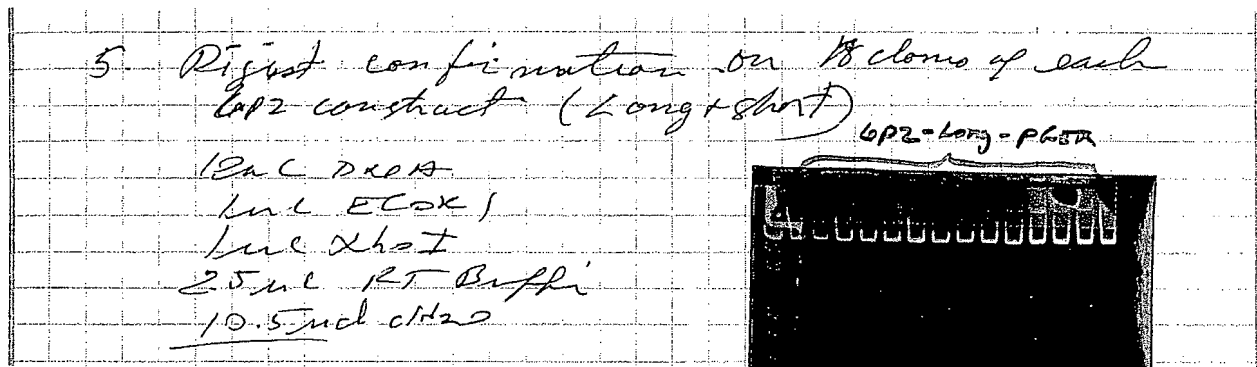 5. Digest confirmation on 18 clones of each
GP2 construct (Long + short)
GP2-Long-PGEX
DNA
1uL ECOR1
1uL XhoI
2.5 uL RT Buffer
10.5 uL dH20